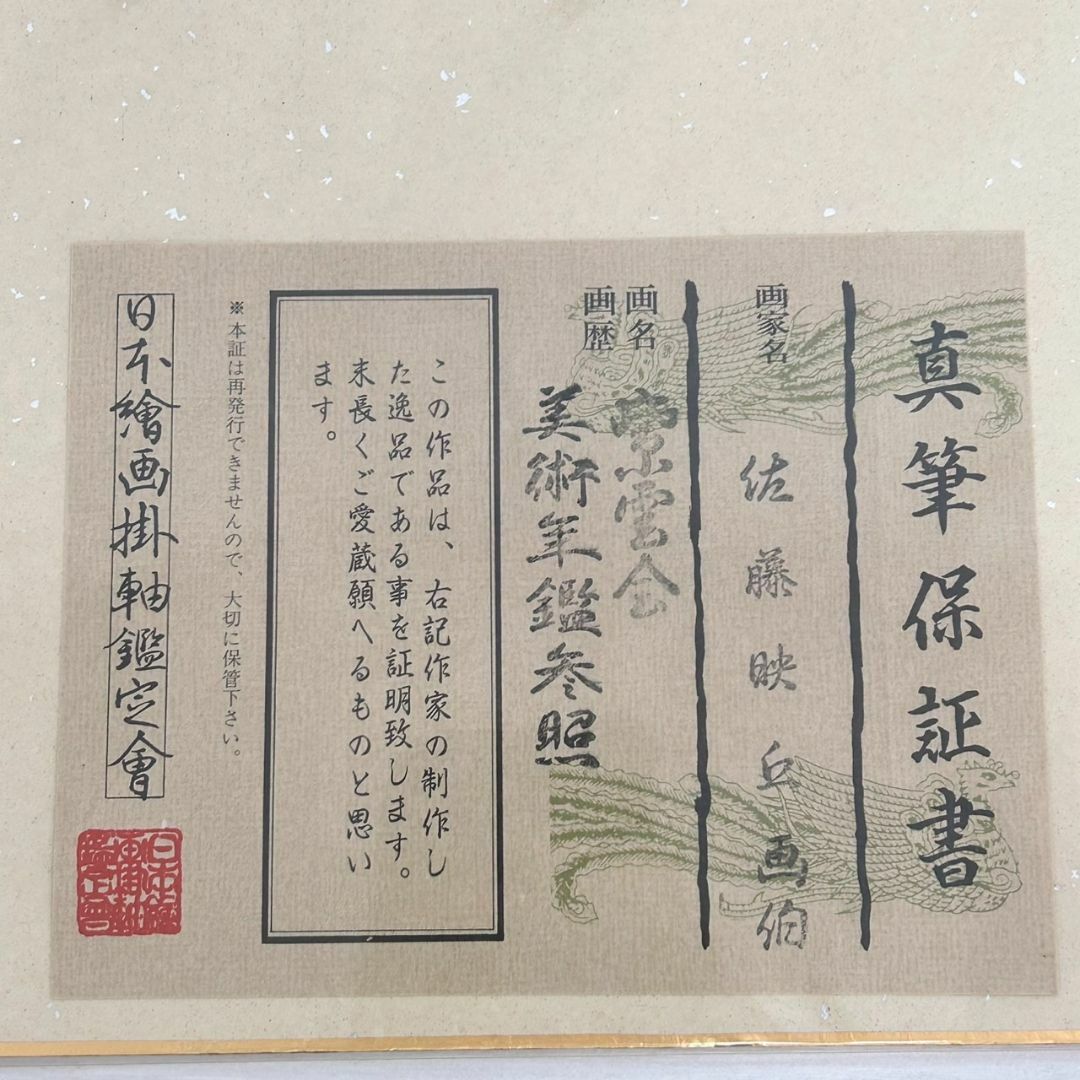 真筆保証書
画家名 佐藤映丘画伯
画名 紫雲会
画歴 美術年鑑参照
この作品は、右記作家の制作し
た逸品である事を証明致します。
末長くご愛蔵願へるものと思い
ます。
※本証は再発行できませんので、大切に保管下さい。
日本繪画掛軸鑑定會